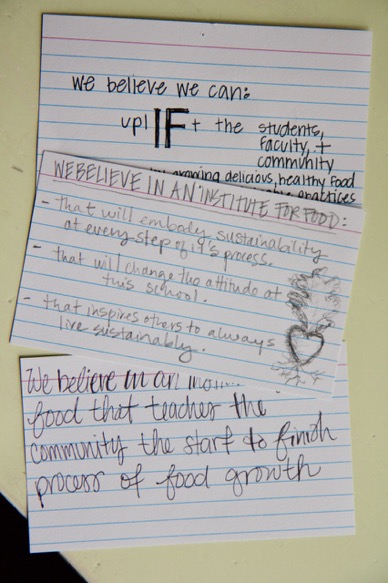 we believe we can:
uplIFt the students,
faculty, +
community
growing delicious, healthy food
practices
WE BELIEVE IN AN INSTITUTE FOR FOOD:
- that will embody sustainability
at every step of it's process.
- that will change the attitude at
this school.
- that inspires others to always
live sustainably.
We believe in an
food that teaches the
community the start to finish
process of food growth